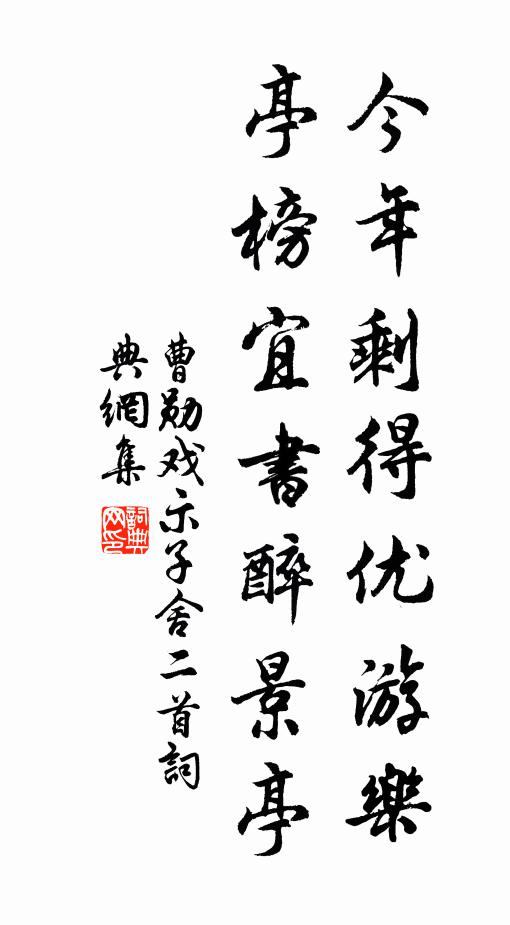 今年剩得优游樂
亭榜宜書醉景亭
曹勋戏示子舍二首詞
典網集
詞典網印